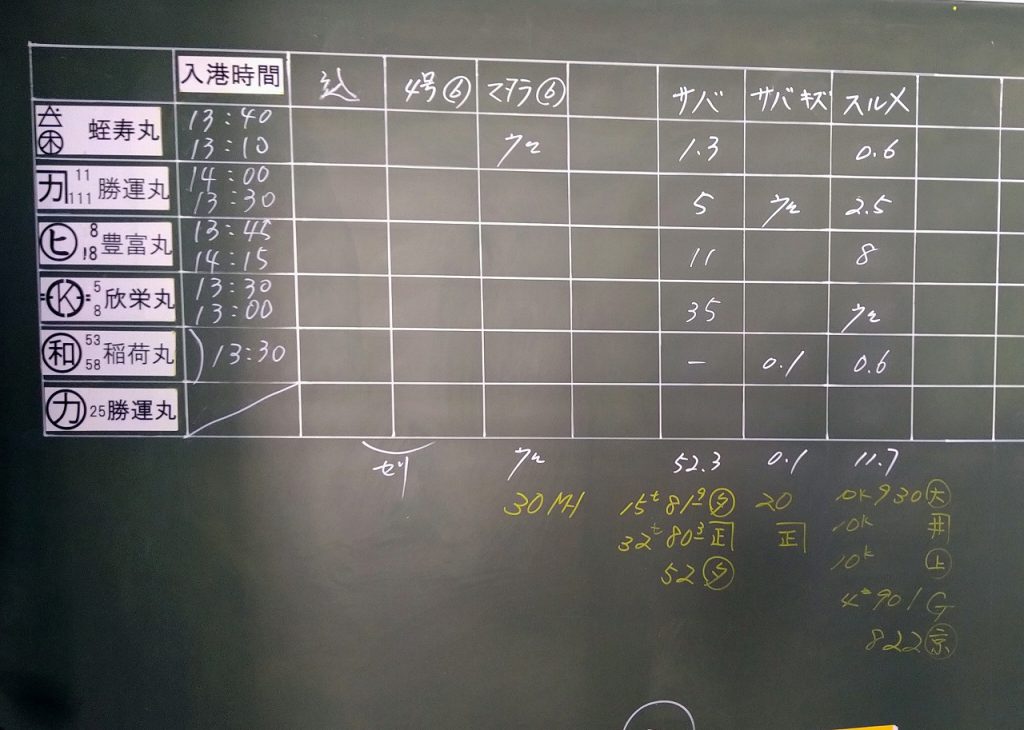 入港時間 込 4号⑥ マダラ⑥ サバ サバキズ スルメ
蛭寿丸 13:40
13:10 1.3 0.6
カ 11 111 勝運丸 14:00
13:30 5 2.5
ヒ 8 18 豊富丸 13:45
14:15 11 8
K 5 8 欣栄丸 13:30
13:00 35
和 53 58 稲荷丸 13:30 - 0.1 0.6
カ 25勝運丸
セリ 52.3 0.1 11.7
30 MH 15t 81 タ 20 10k 930 大
32t 80 正 正 10k 井
52 タ 10k 上
901 G
822 京